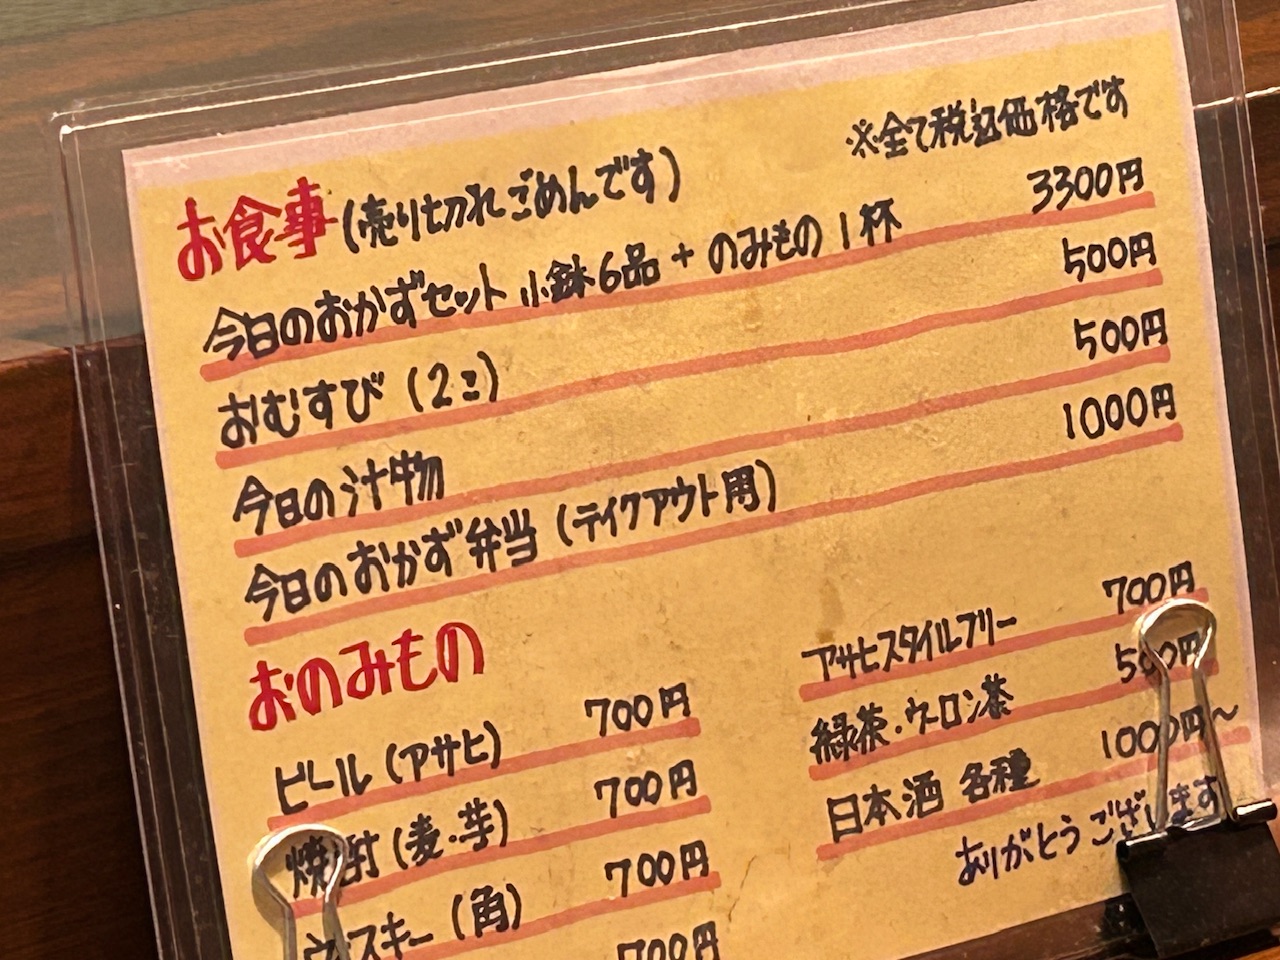 ※全て税込価格です
お食事(売り切れごめんです)
今日のおかずセット 小鉢6品+のみもの1杯 3300円
おむすび(2こ) 500円
今日の汁物 500円
今日のおかず弁当(テイクアウト用) 1000円
おのみもの
ビール(アサヒ) 700円
焼酎(麦・芋) 700円
ウィスキー(角) 700円
700円
アサヒスタイルフリー 700円
緑茶・ウーロン茶 500円
日本酒 各種 1000円〜
ありがとうございます